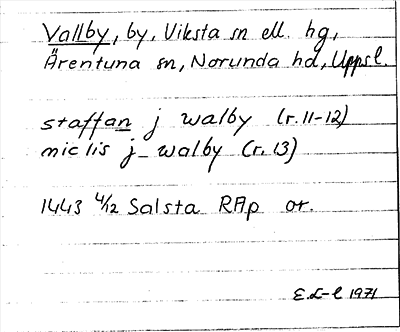 Vallby, by, Viksta sn ell. hg,
Ärentuna sn, Norunda hd, Uppsl.
staffan j walby (r. 11-12)
miclis j_ walby (r. 13)
1443 4/12 Salsta RAp or.
E.L-l 1971